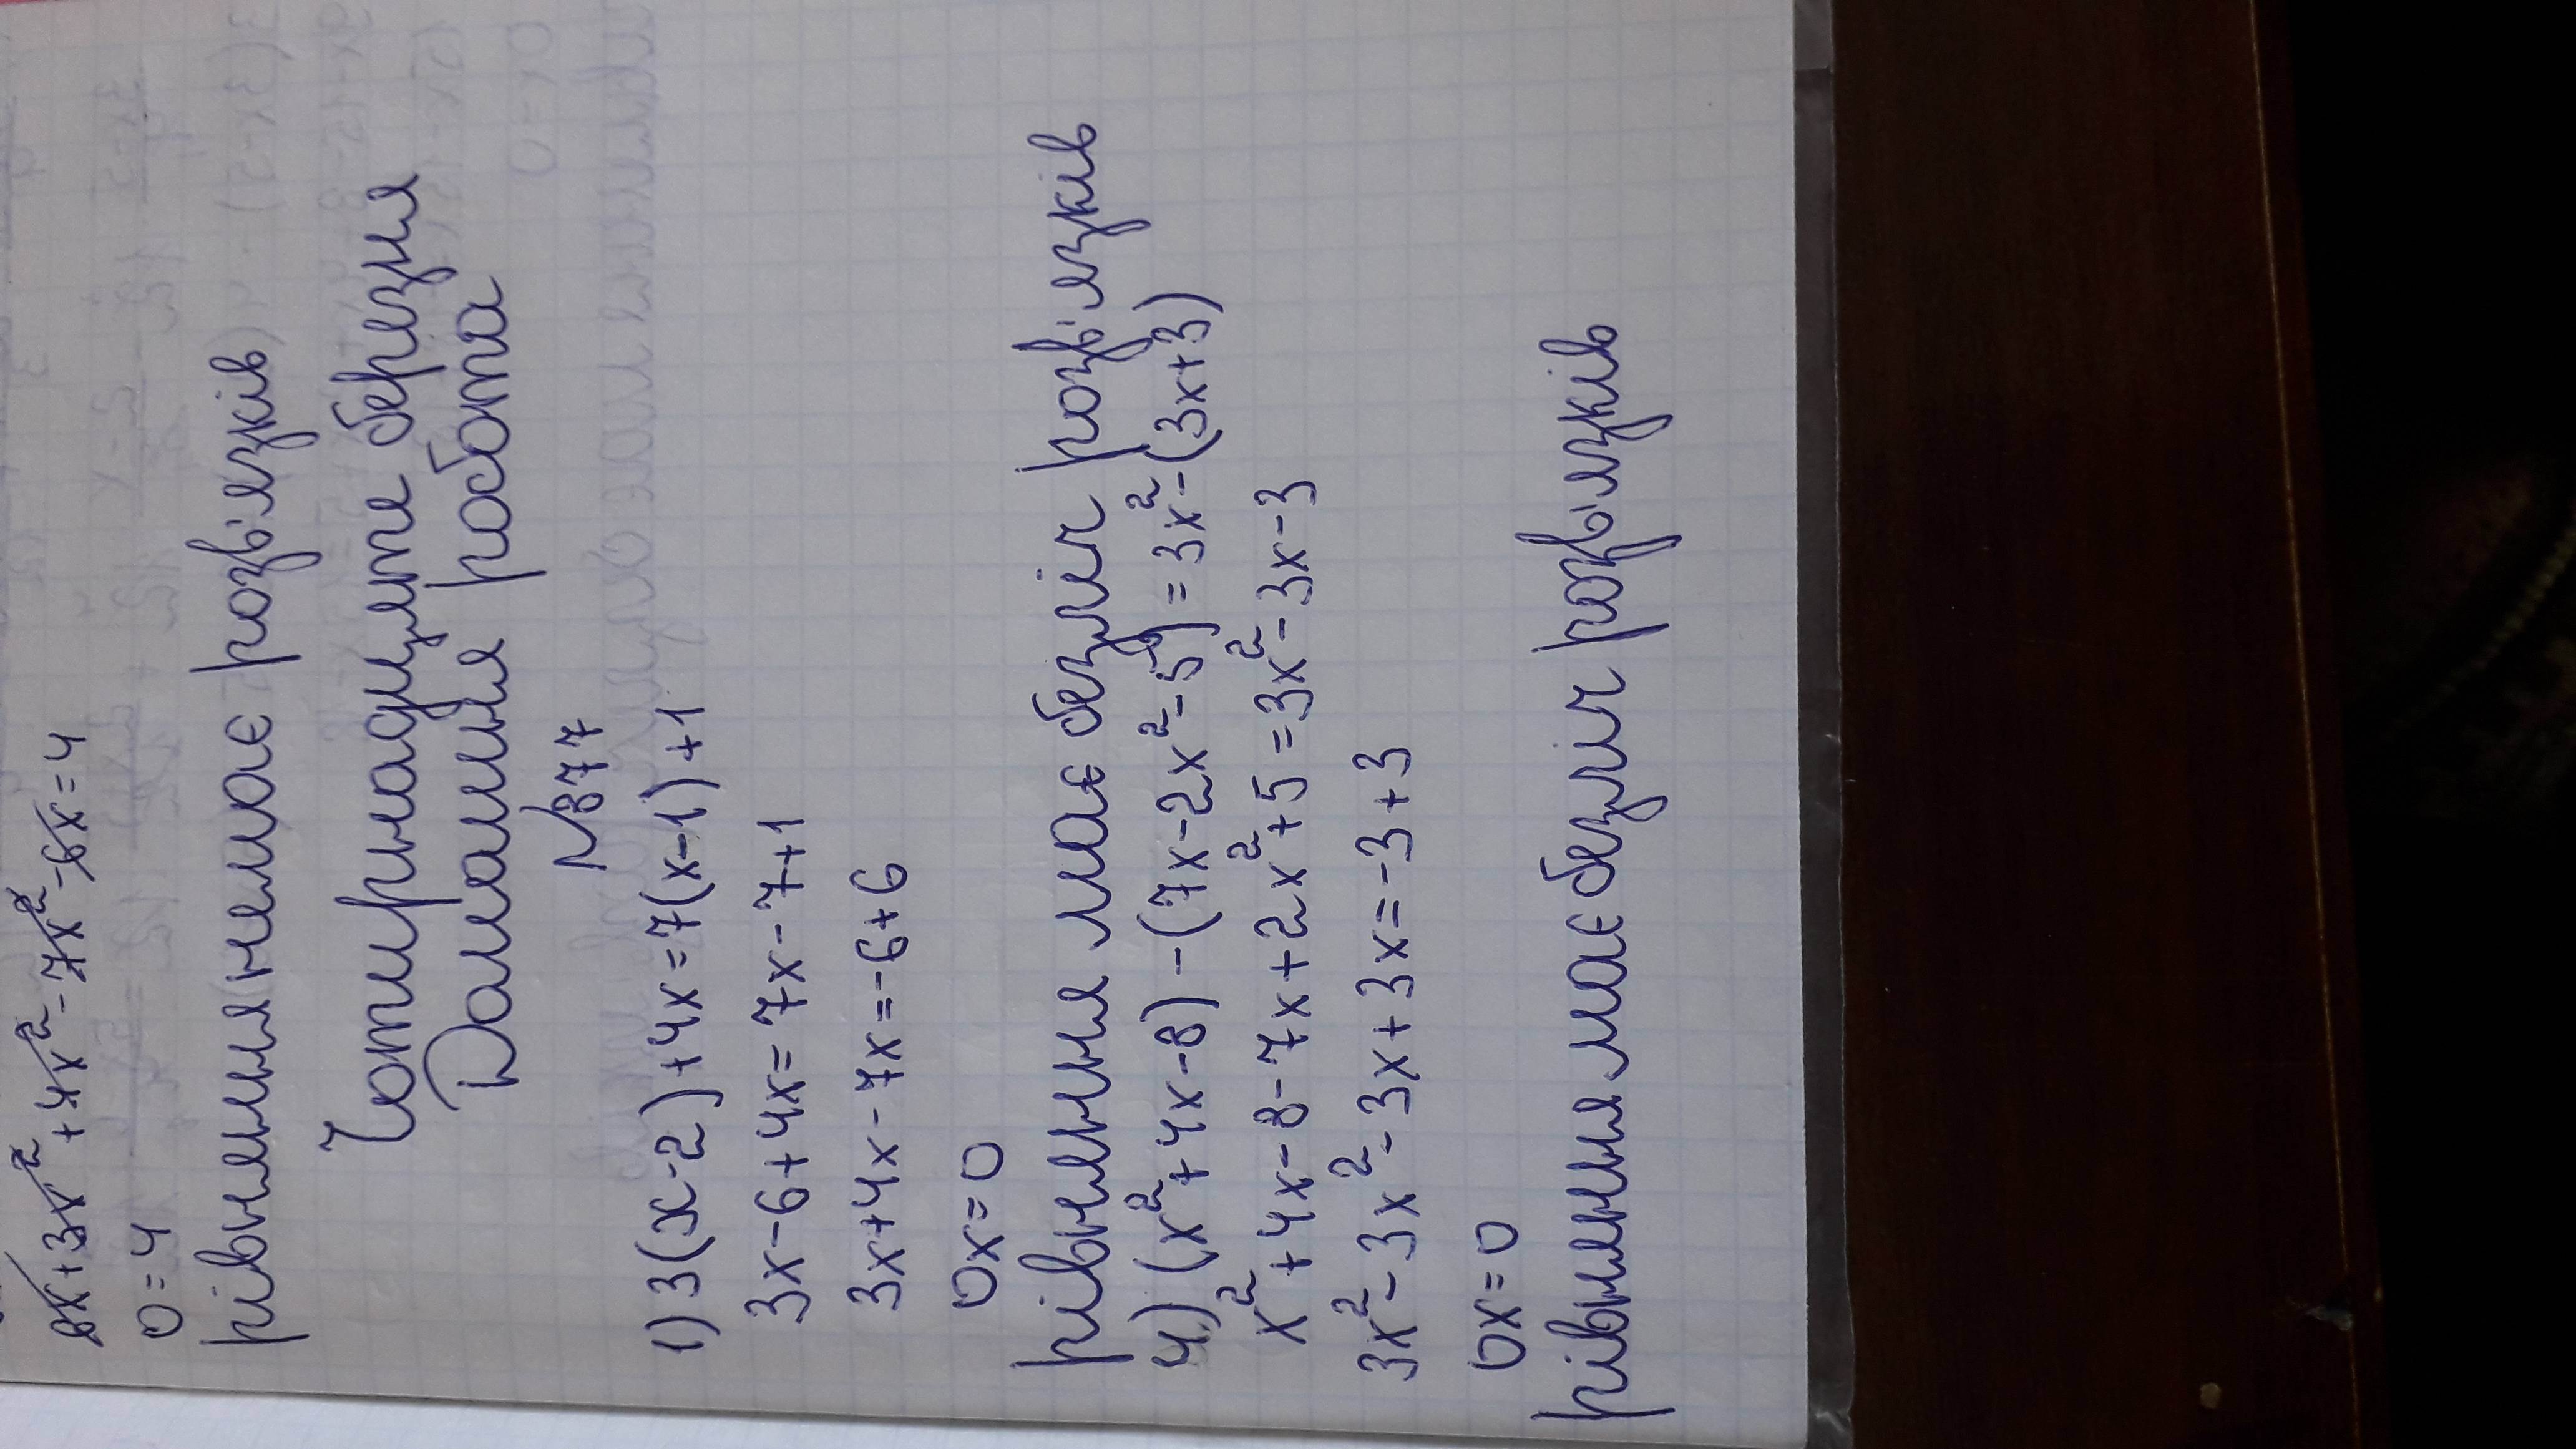 8x+3x²+4x²-7x²-8x=4
0=4
рівняння немає розв'язків
Чотирнадцяте березня
Домашня робота
№877
1) 3(x-2)+4x=7(x-1)+1
3x-6+4x=7x-7+1
3x+4x-7x=-6+6
0x=0
рівняння має безліч розв'язків
4) (x²+4x-8)-(7x-2x²-5)=3x²-(3x+3)
x²+4x-8-7x+2x²+5=3x²-3x-3
3x²-3x²-3x+3x=-3+3
0x=0
рівняння має безліч розв'язків